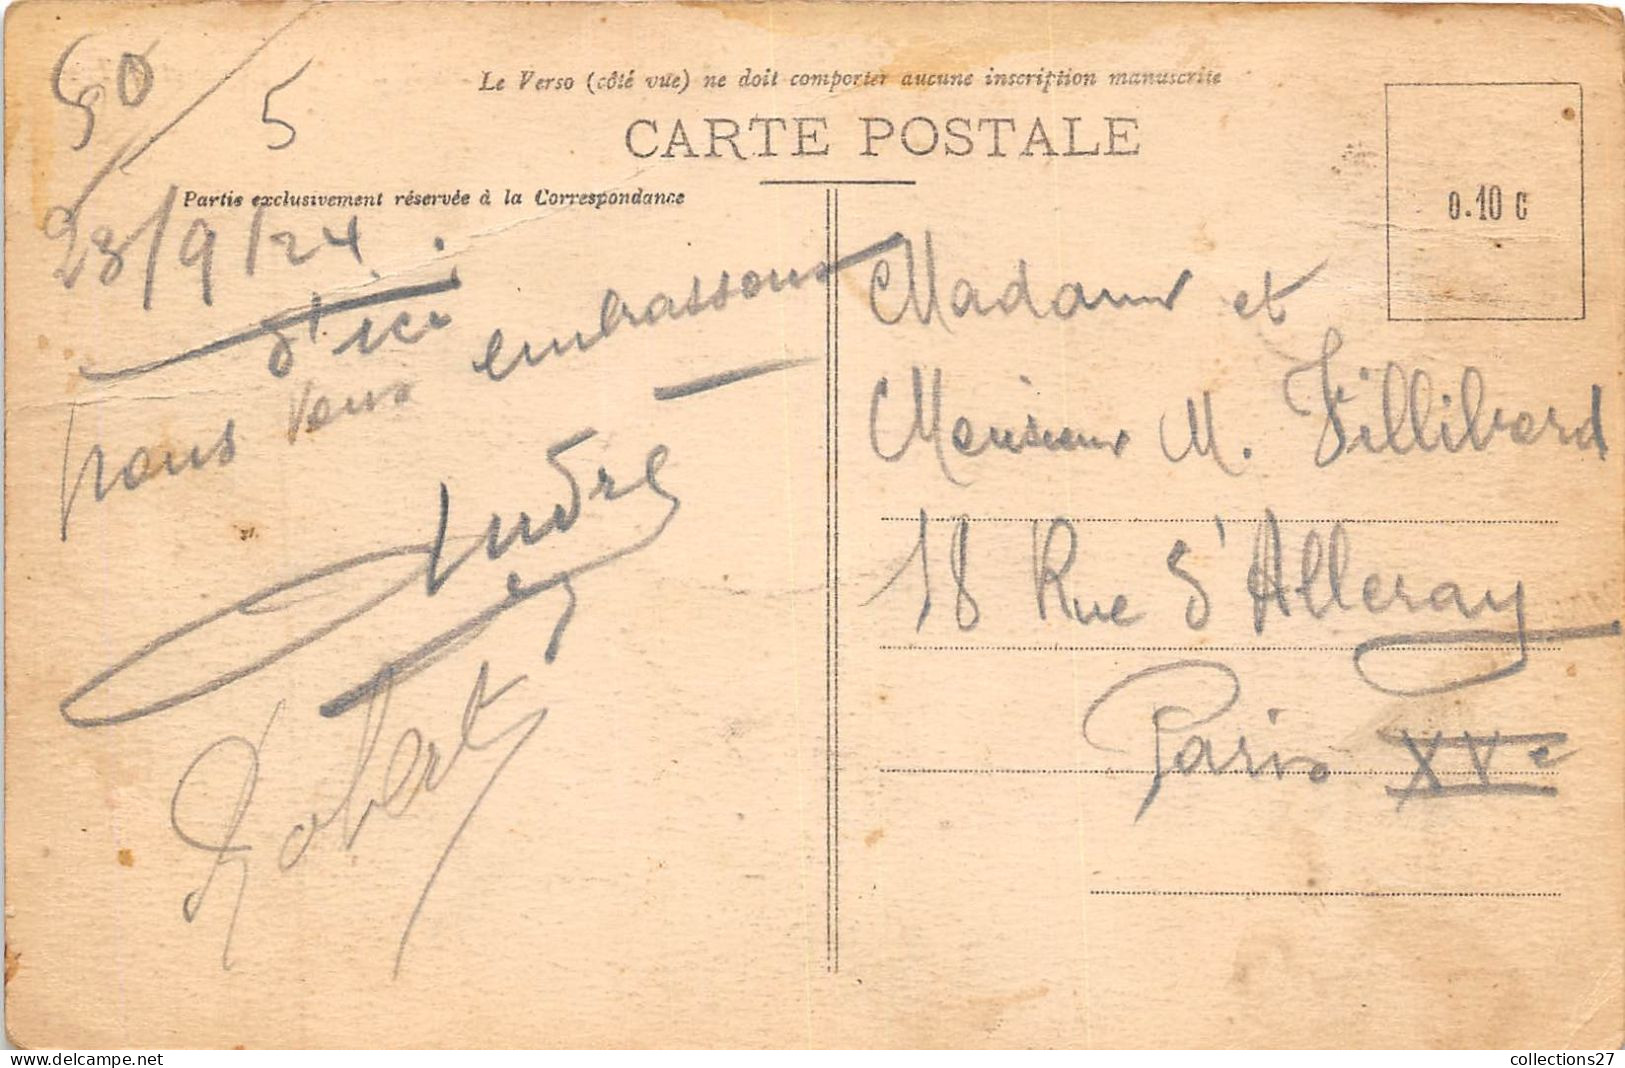 50
5
Le Verso (côté vue) ne doit comporter aucune inscription manuscrite
CARTE POSTALE
Partie exclusivement réservée à la Correspondance
0.10 C
28/9/24
d'ici
nous vous embrassons
André
Robert
Madame et
Monsieur M. Fillibard
18 Rue d'Alleray
Paris XVe
collections27